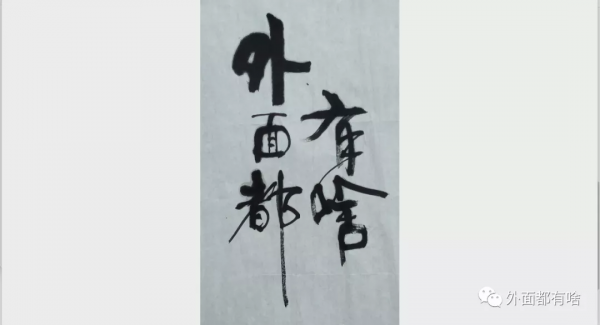 外面都
有啥
外面都有啥